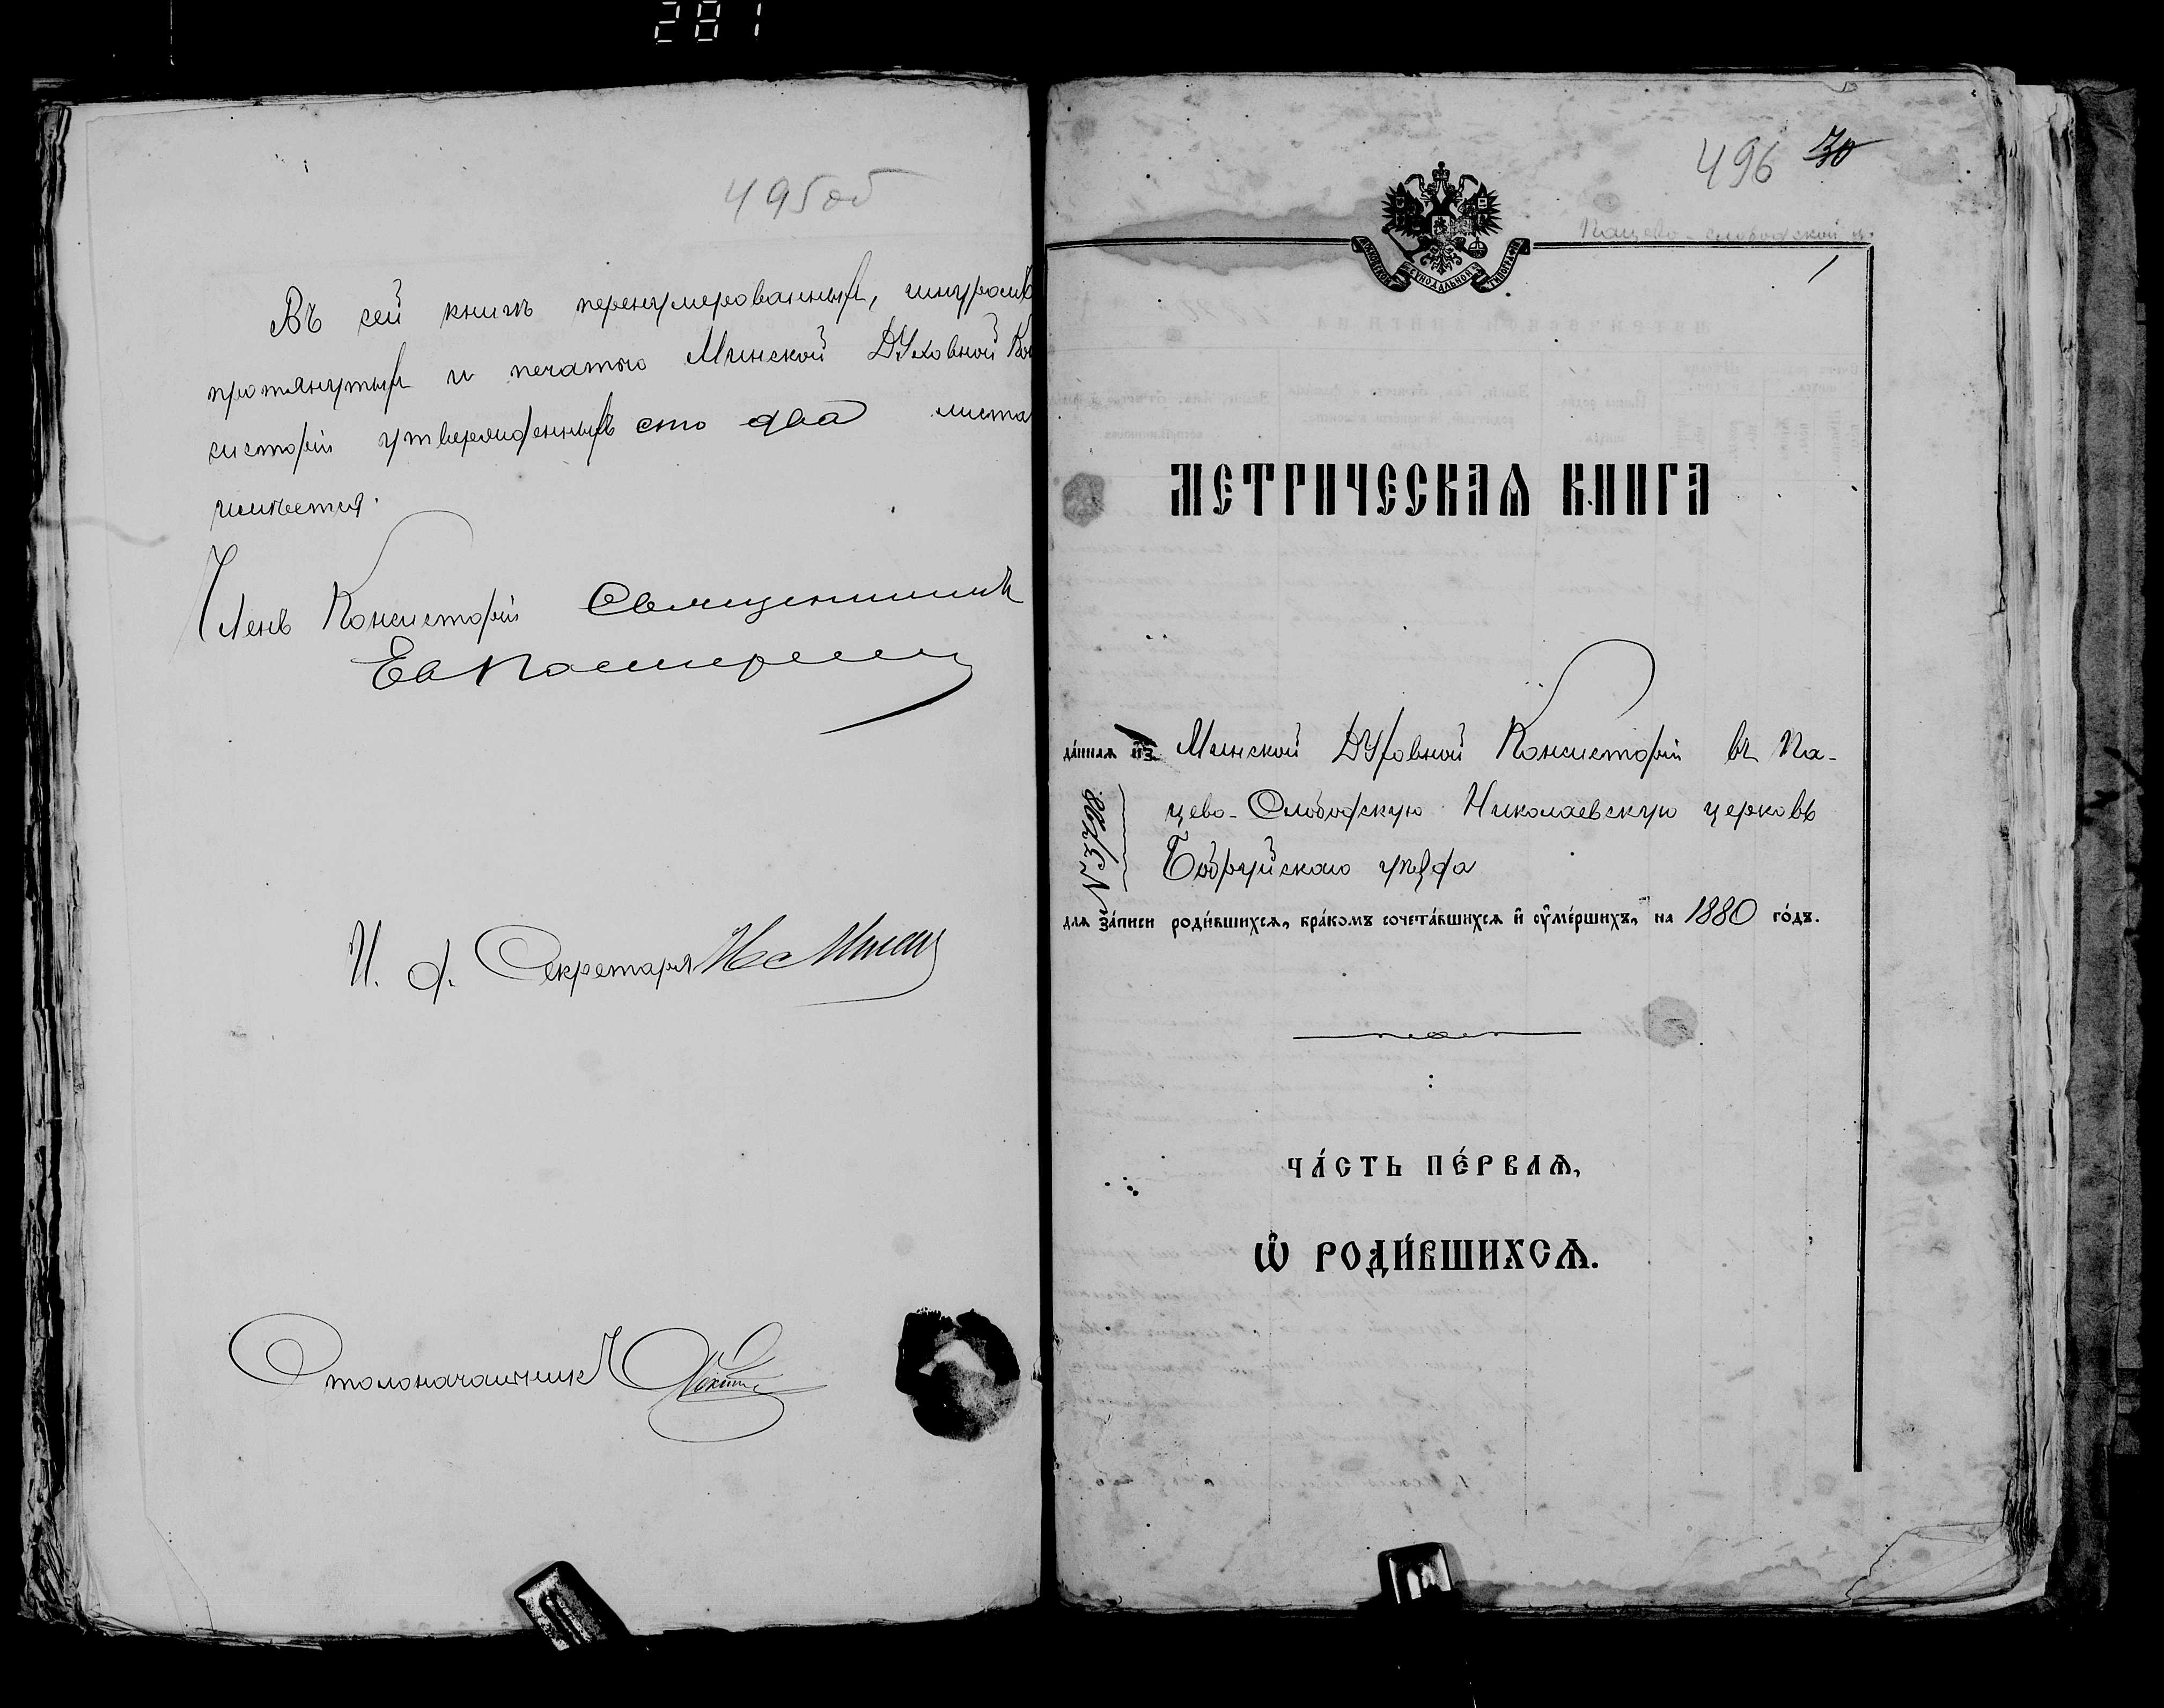 281
495об
Въ сей книгѣ перенумерованныхъ, шнуромъ
протянутыхъ и печатью Минской Духовной Кон
систоріи утвержденныхъ сто два листа
числится.
Членъ Консисторіи Священникъ
И. д. Секретаря
Столоначальникъ
496 70
Пацево-слободской ц.
МОСКОВСКОЙ СѴНОДАЛЬНОЙ ТИПОГРАФІИ
1
МЕТРИЧЕСКАѦ КНИГА
да́ннаѧ и҆з̾ Минской Духовной Консисторіи въ Па-
цево-Слободскую Николаевскую церковь
Бобруйскаго уѣзда
№ 3728
для за́писи роди́вшихсѧ, бра́комъ сочета́вшихсѧ и҆ ᲂу҆ме́ршихъ, на 1880 го́дъ.
ЧА́СТЬ ПЕ́РВАѦ,
Ѽ РОДИ́ВШИХСѦ.